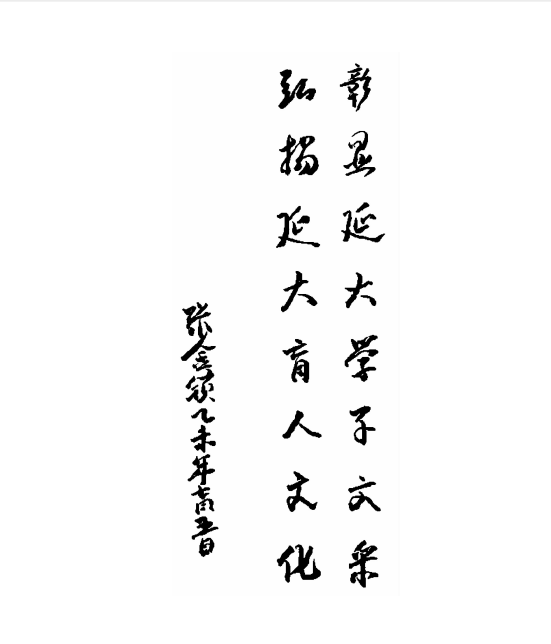 彰显延大学子文采
弘扬延大育人文化
张金锁乙未年